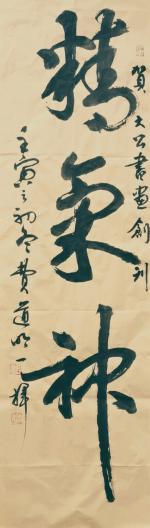 賀大公書畫創刊
精氣神
壬寅之初冬費道明一揮